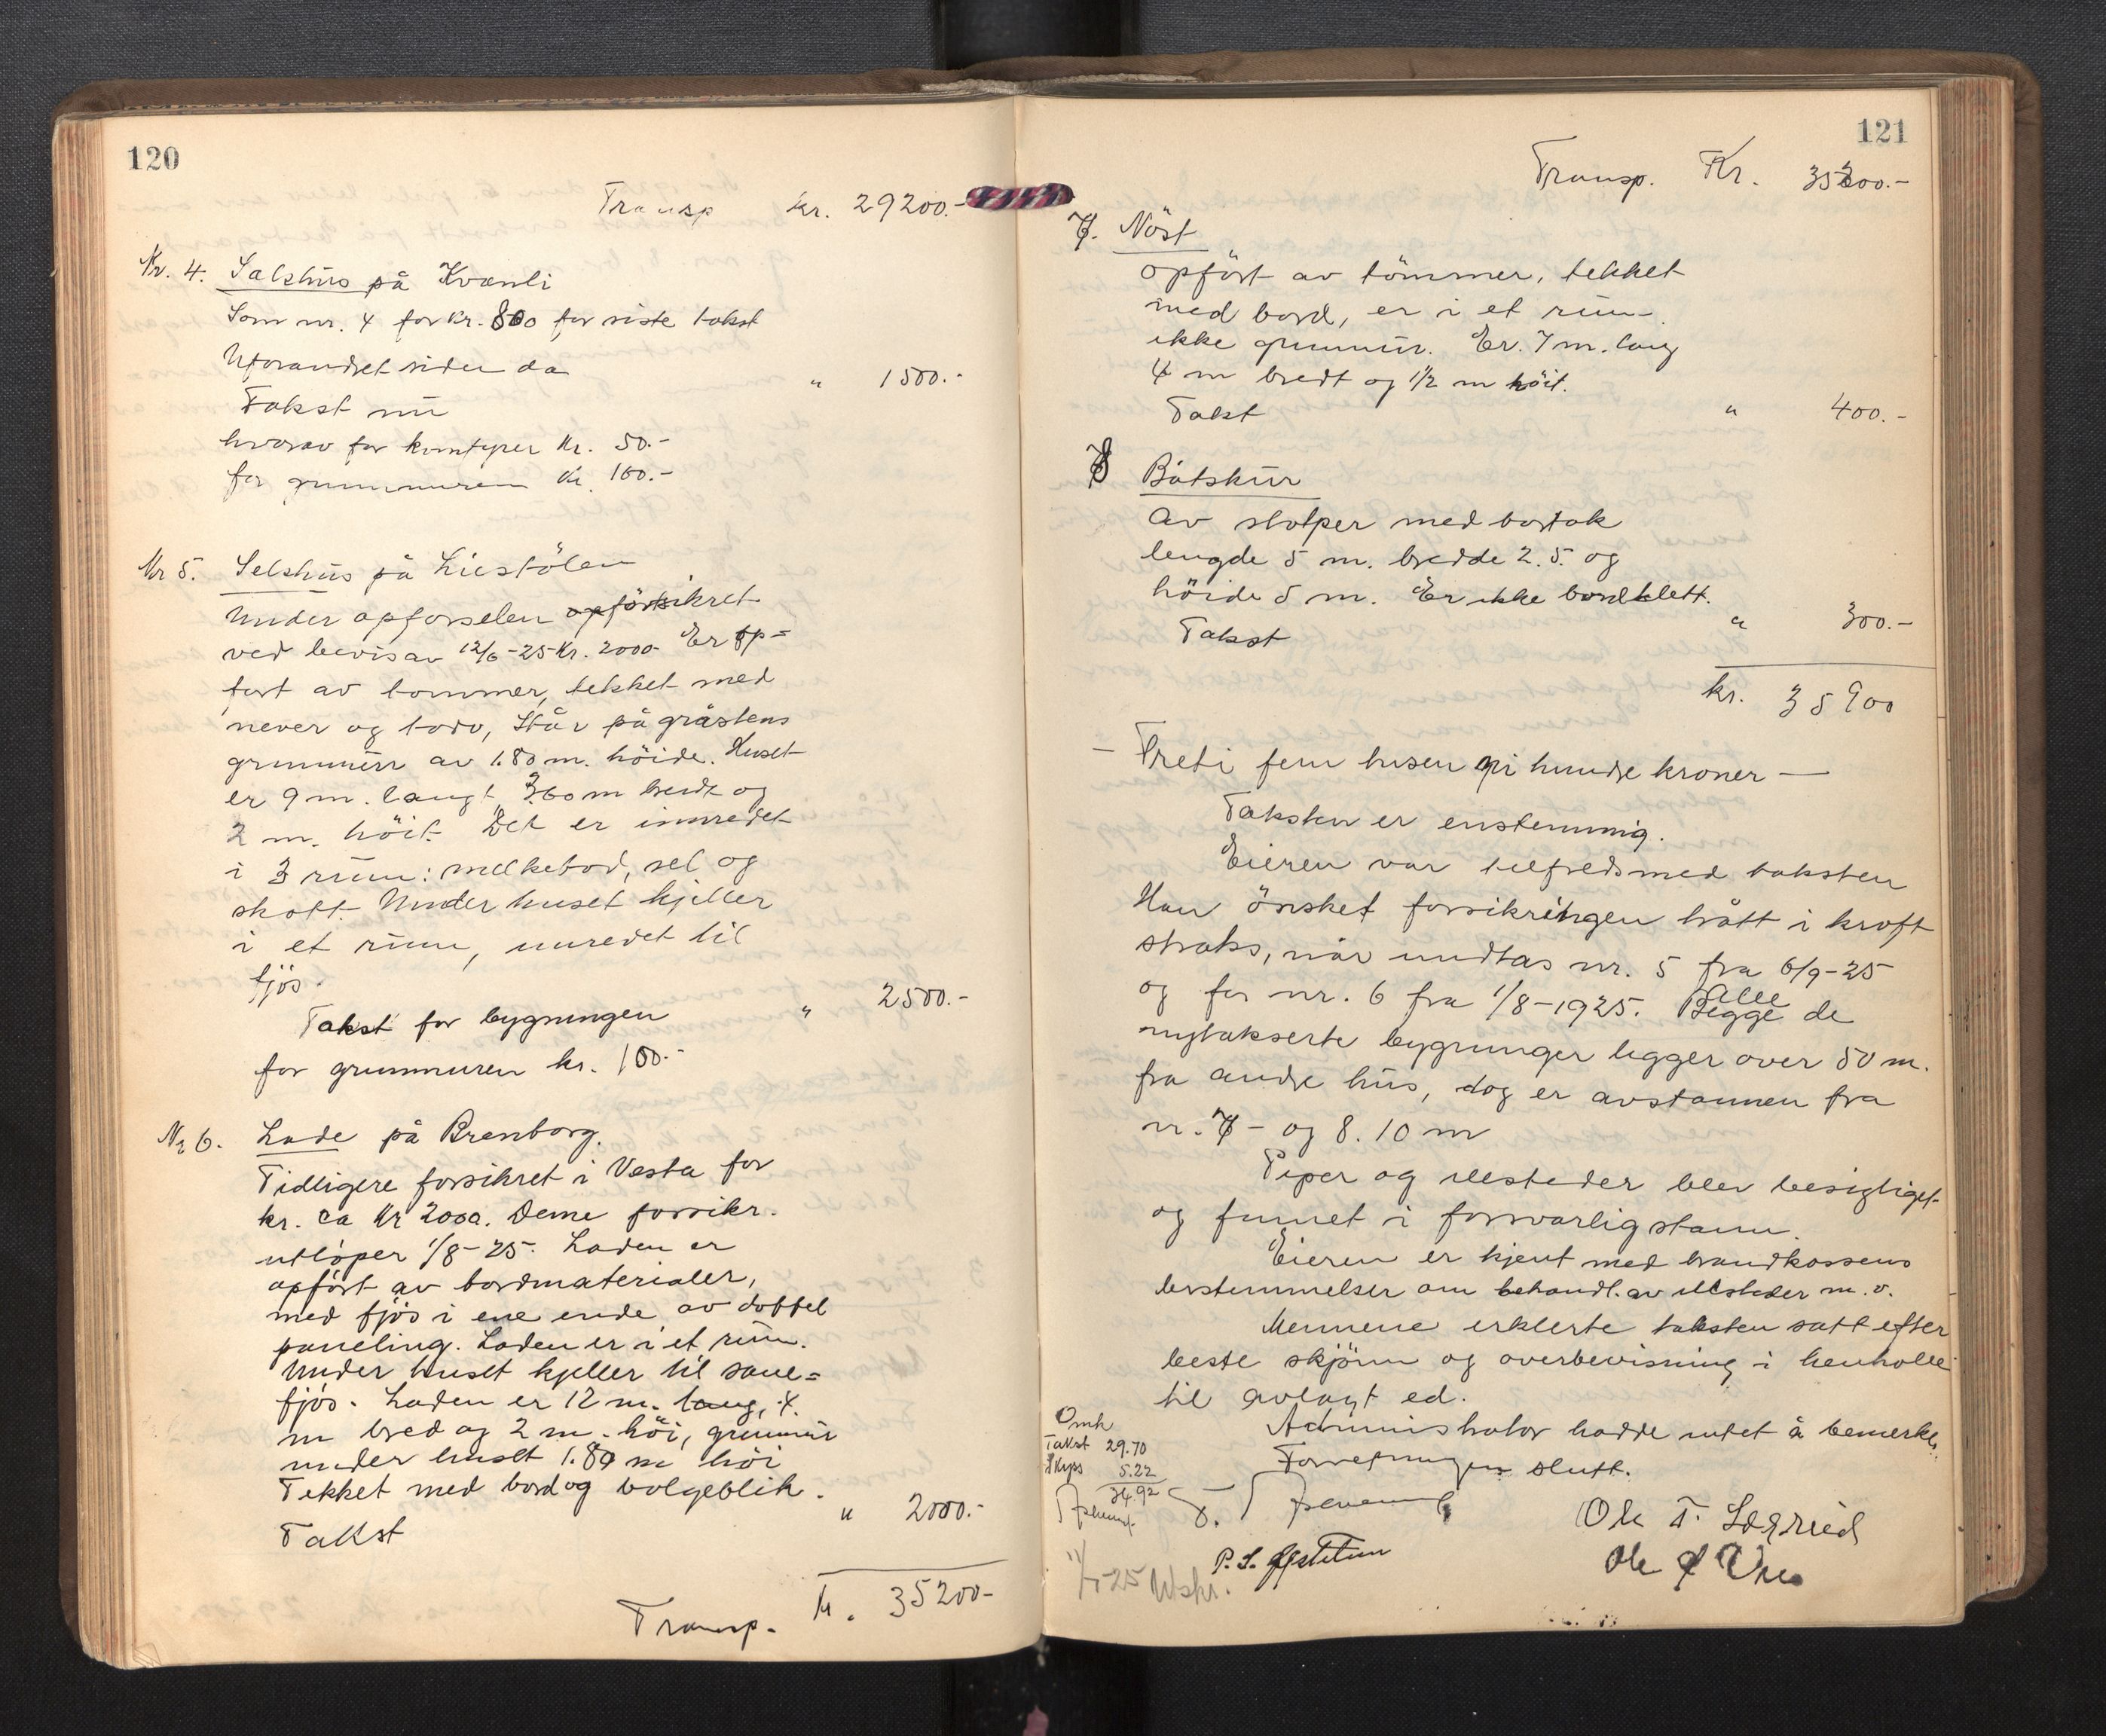 120
Transp kr. 29200.-
Nr. 4. Salshus på Kvanli
Som nr. 4 for kr. 800 for siste takst
Uforandret siden da " 1500.-
Takst nu
hvorav for komfyrer Kr. 50.-
for grunnmuren Kr. 100.-
Nr 5. Selshus på Liestölen
Under opförselen forsikret
ved bevis av 12/6-25 Kr. 2000- Er op=
fört av tömmer, tekket med
never og torv, Står på gråstens
grunnmur av 1.80 m. höide. Huset
er 9 m. langt 3.60 m bredt og
2 m. höit. Det er innredet
i 3 rum: melkebod, sel og
skott. Under huset kjeller
i et rum, innredet til
fjös.
Takst for bygningen " 2500.-
for grunnmuren kr. 100.-
Nr 6. Lade på Brenborg.
Tidligere forsikret i Vesta for
kr. ca Kr 2000. Denne forsikr.
utlöper 1/8-25. Laden er
opfört av bordmaterialer,
med fjös i ene ende av dobbel
paneling. Laden er i et rum.
Under huset kjeller til saue=
fjös. Laden er 12 m. lang, 4.
m bred og 2 m. höi, grunnmur
under huset 1.80 m höi
Tekket med bord og bolgeblik.
Takst " 2000.-
Transp. Kr. 35200-
121
Transp. Kr. 35200.-
7. Nöst
opfört av tömmer, tekket
med bord, er i et rum-
ikke grunnmur. Er. 7 m. lang
4 m bredt og 1/2 m höit.
Takst " 400.-
8 Båtskur
av stolper med bortak
lengde 5 m. bredde 2.5. og
höide 5 m. Er ikke bordklett.
Takst " 300.-
kr. 35900
- Treti fem tusen ni hundre kroner -
Taksten er enstemmig.
Eieren var tilfreds med taksten
Han önsket forsikringen trått i kraft
straks, når undtas nr. 5 fra 6/9-25
og for nr. 6 fra 1/8-1925. Begge alle de
nytakserte bygninger ligger over 50 m.
fra andre hus, dog er avstannen fra
nr. 7- og 8. 10 m
Piper og ildsteder blev besigtiget
og funnet i forsvarlig stann.
Eieren er kjent med brandkassens
bestemmelser om behandl. av illsteder m. v.
Mennene erklerte taksten satt efter
beste skjönn og overbevisning i henholl
til avlagt ed.
Administrator hadde intet å bemerke.
Forretningen slutt.
Omk
Takst 29.70
Skyss 5.22
34.92